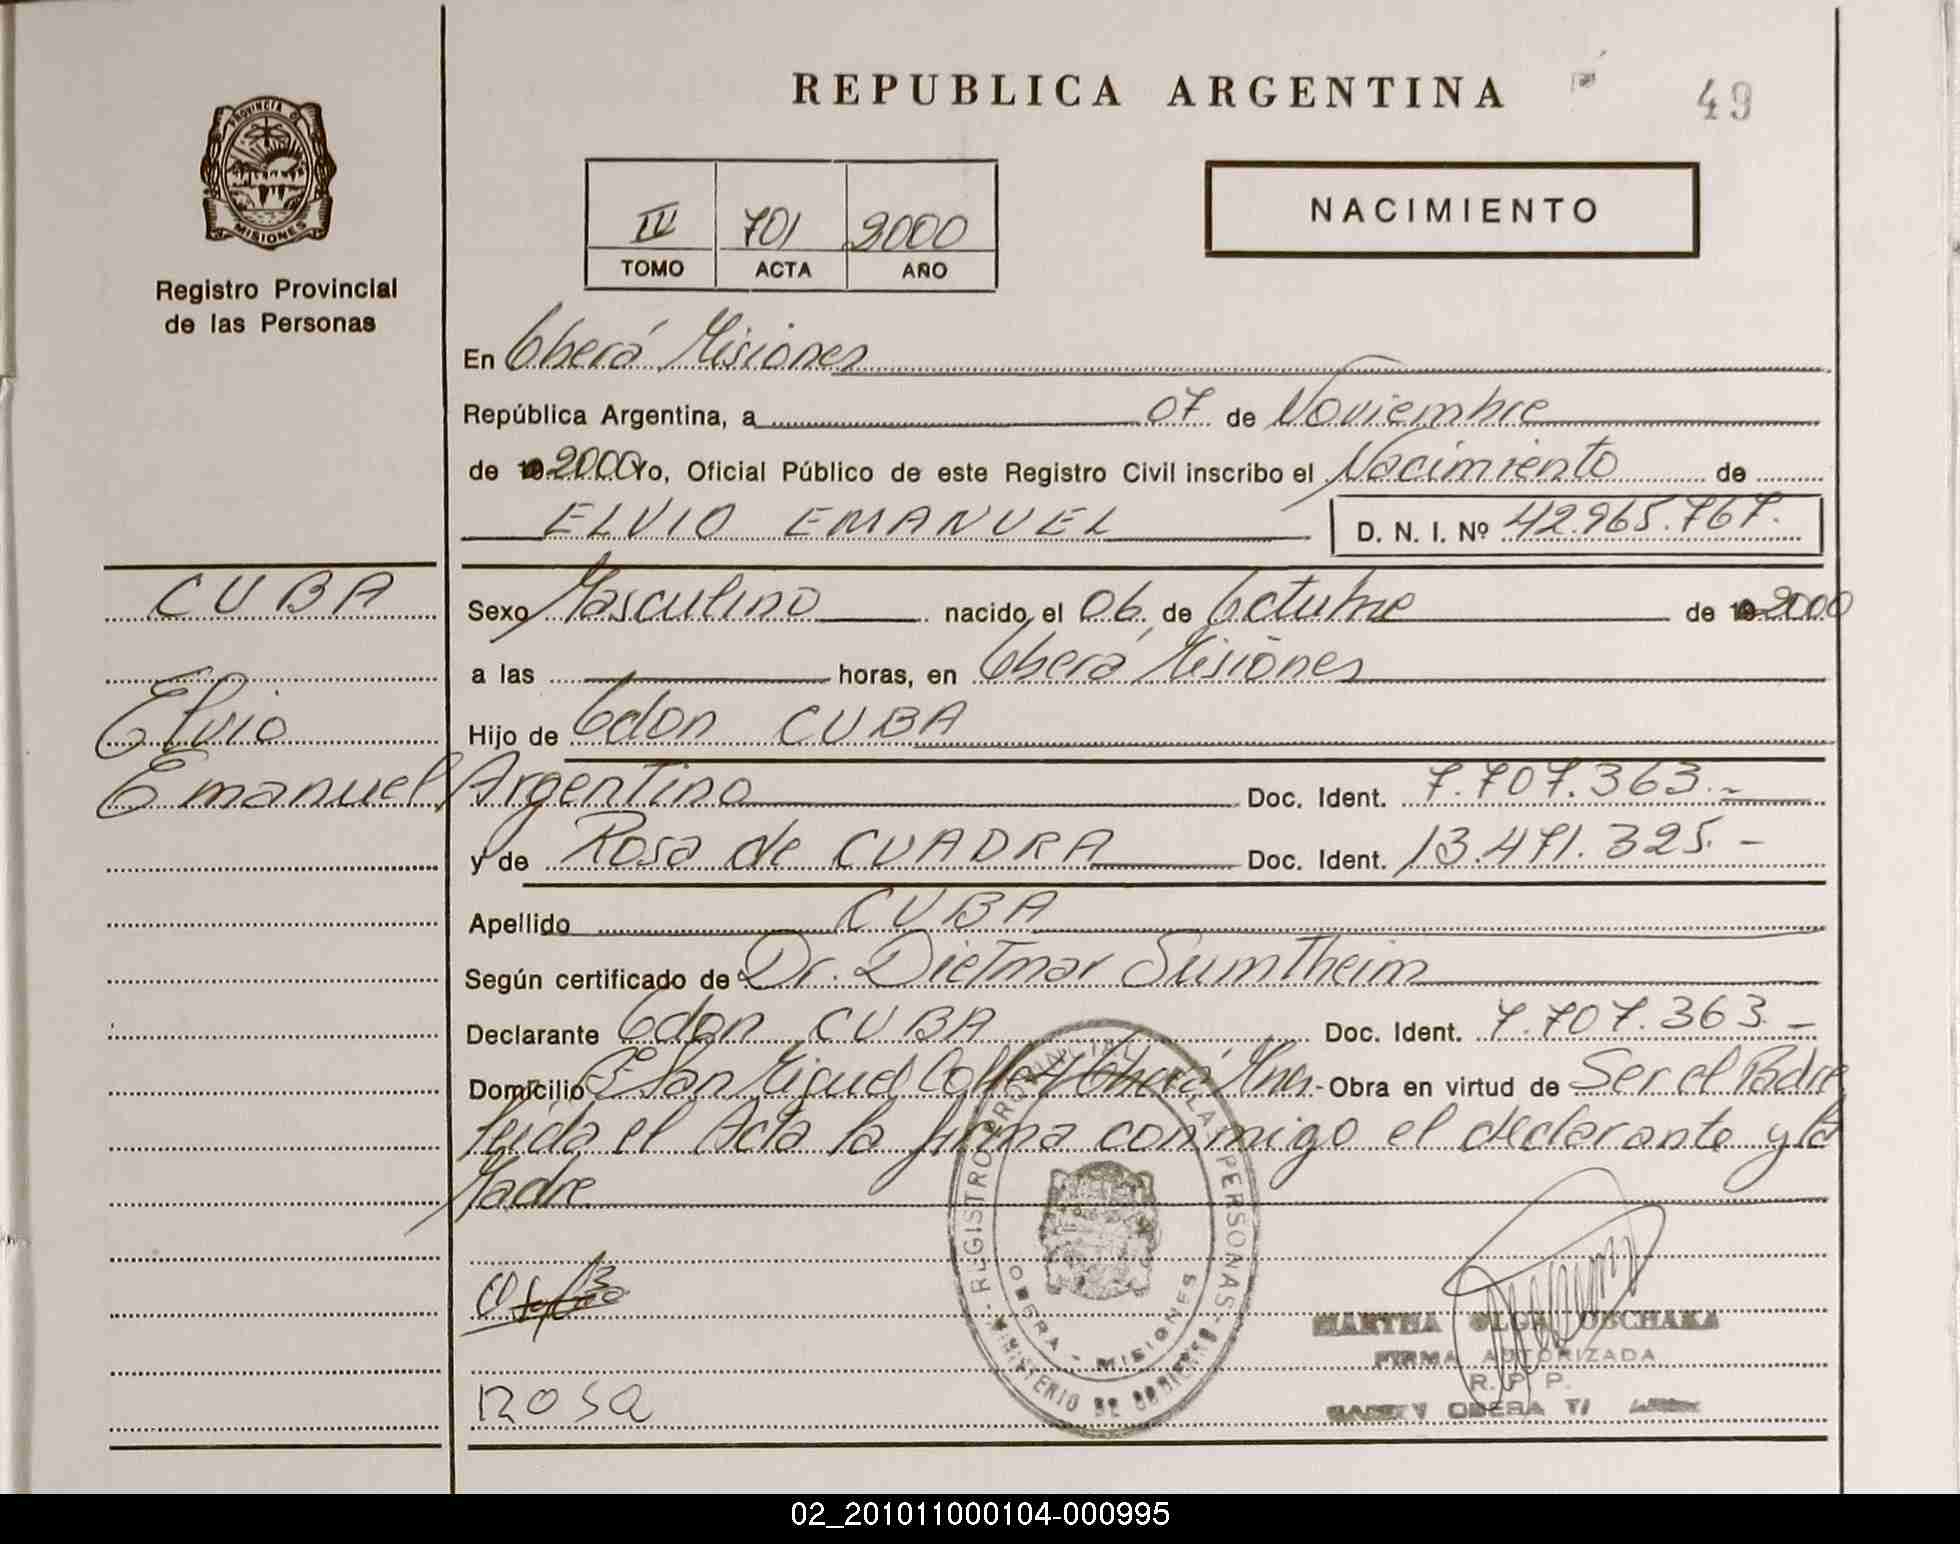 REPUBLICA ARGENTINA
49
PROVINCIA DE
MISIONES
Registro Provincial
de las Personas
IV 701 2000
TOMO ACTA AÑO
NACIMIENTO
En Oberá Misiones
República Argentina, a 07 de Noviembre
de 2000 Yo, Oficial Público de este Registro Civil inscribo el Nacimiento de
ELVIO EMANUEL D. N. I. Nº 42.965.767.
CUBA
Elvio
Emanuel
Sexo Masculino nacido el 06 de Octubre de 2000
a las horas, en Oberá Misiones
Hijo de Odon CUBA
Argentino Doc. Ident. 7.707.363.-
y de Rosa de CUADRA Doc. Ident. 13.471.325.-
Apellido CUBA
Según certificado de Dr. Dietmar Sumtheim
Declarante Odon CUBA Doc. Ident. 7.707.363.-
Domicilio San Miguel Oberá Mnes.- Obra en virtud de Ser el Padre
leida el Acta la firma conmigo el declarante y la
Madre
REGISTRO PROVINCIAL DE LAS PERSONAS
OBERA - MISIONES
MINISTERIO DE GOBIERNO
MARTHA OLGA
FIRMA AUTORIZADA
R. P. P.
OBERA
ROSA
02_201011000104-000995